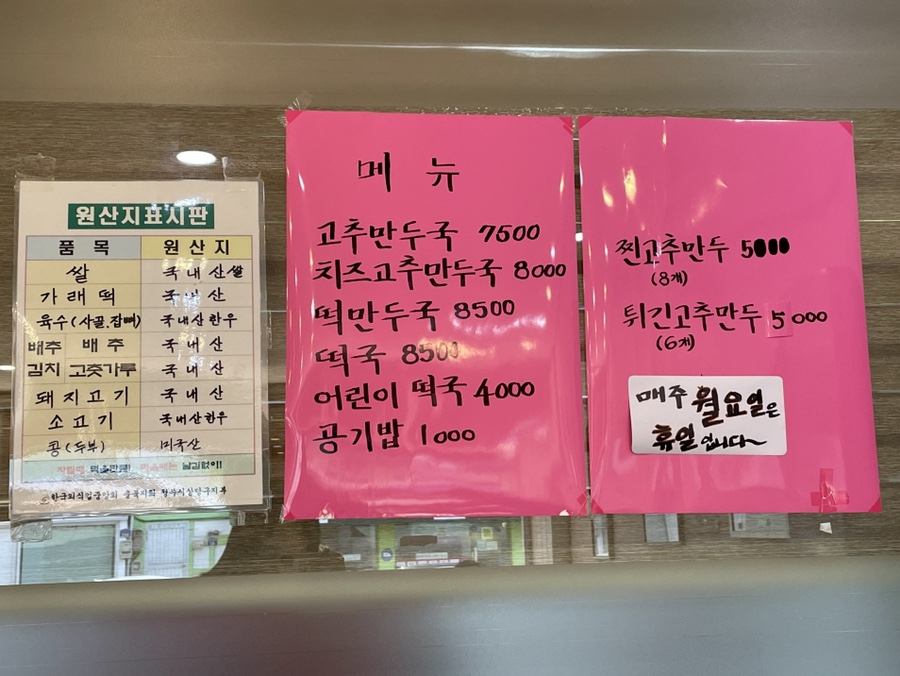 원산지표시판
품목 원산지
쌀 국내산쌀
가래떡 국내산
육수(사골.잡뼈) 국내산한우
배추 배추 국내산
김치 고춧가루 국내산
돼지고기 국내산
소고기 국내산한우
콩(두부) 미국산
남김없이!
메뉴
고추만두국 7500
치즈고추만두국 8000
떡만두국 8500
떡국 8500
어린이 떡국 4000
공기밥 1000
찐고추만두 5000
(8개)
튀긴고추만두 5000
(6개)
매주 월요일은
휴일입니다~